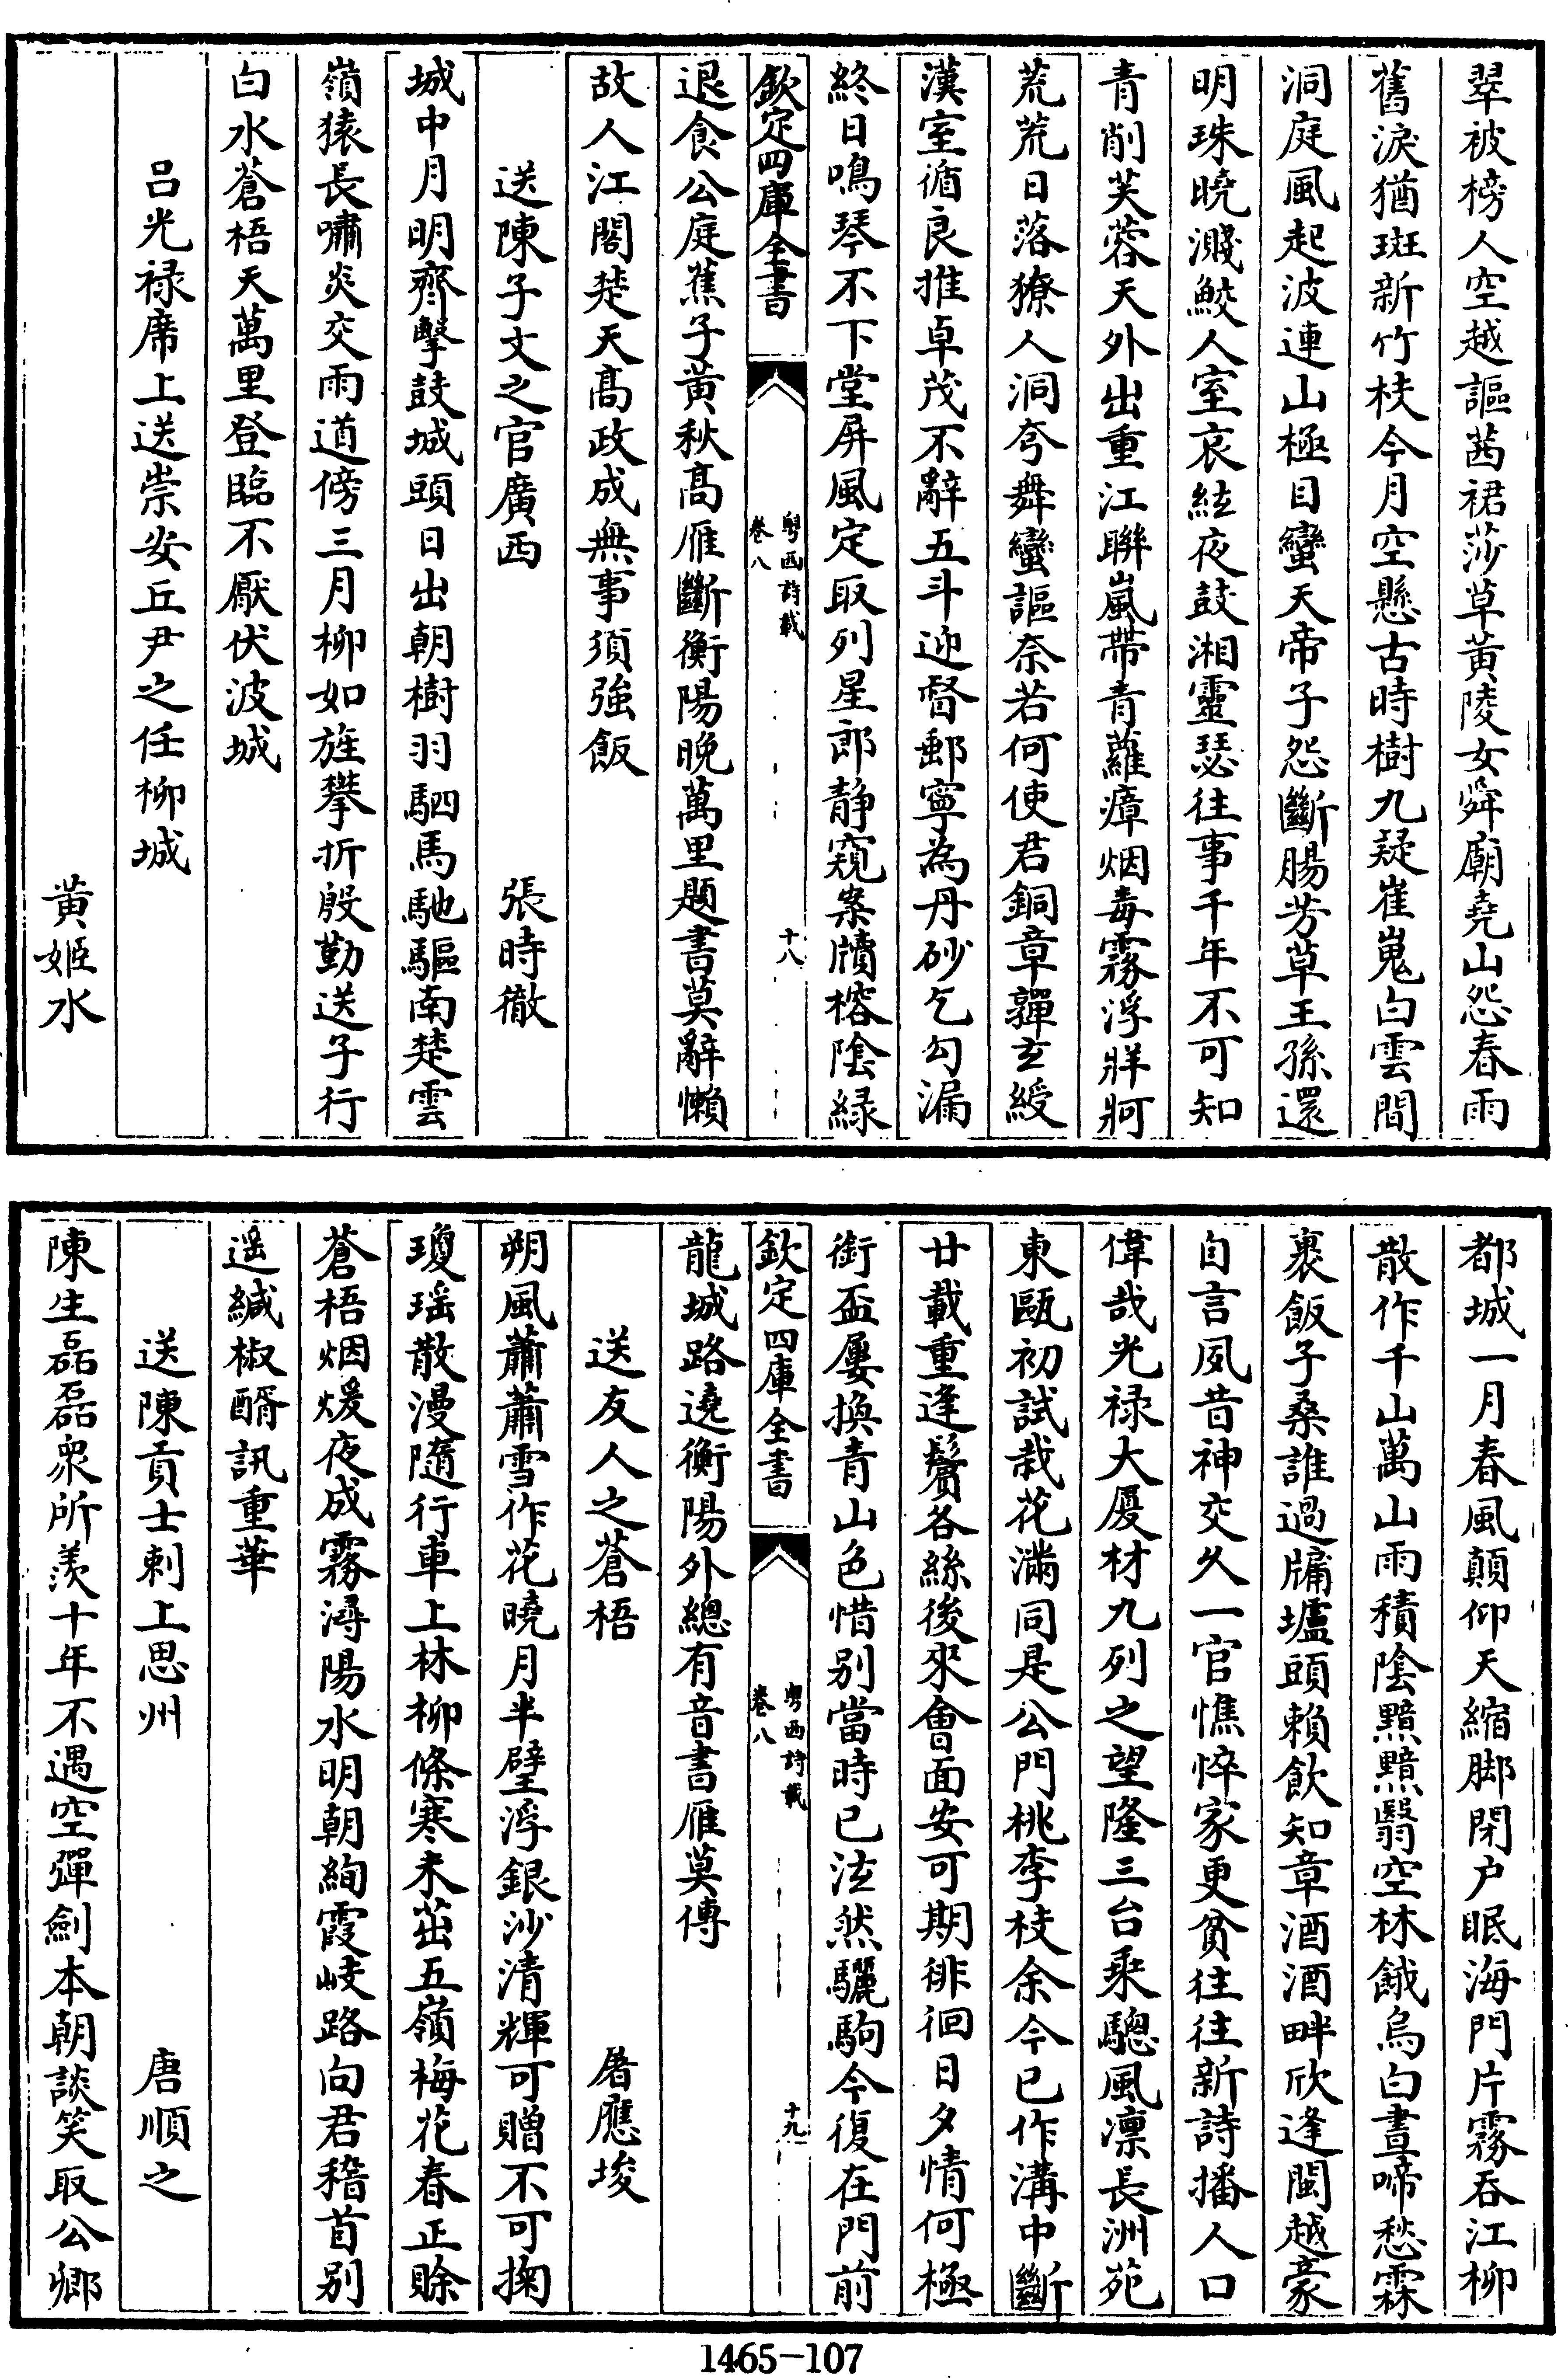 翠被榜人空越謳茜裙莎草黄陵女舜廟堯山怨春雨
舊淚猶斑新竹枝今月空懸古時樹九疑崔嵬白雲間
洞庭風起波連山極目蠻天帝子怨斷腸芳草王孫還
明珠曉濺鮫人室哀絃夜鼓湘靈瑟往事千年不可知
青削芙蓉天外出重江聯嵐帶青蘿瘴烟毒霧浮牂牁
荒荒日落獠人洞夸舞蠻謳奈若何使君銅章軃玄綬
漢室循良推卓茂不辭五斗迎督郵寧為丹砂乞勾漏
終日鳴琴不下堂屏風定取列星郎静窺案牘榕陰緑
欽定四庫全書
粤西詩載
卷八
十八
退食公庭蕉子黄秋髙雁斷衡陽晚萬里題書莫辭懶
故人江閣楚天髙政成無事須強飯
送陳子文之官廣西
張時徹
城中月明齊擊鼓城頭日出朝樹羽駟馬馳驅南楚雲
嶺猿長嘯炎交雨道傍三月柳如旌攀折殷勤送子行
白水蒼梧天萬里登臨不厭伏波城
吕光禄席上送崇安丘尹之任柳城
黄姬水
都城一月春風顛仰天縮脚閉户眠海門片霧吞江柳
散作千山萬山雨積陰黯黯翳空林餓烏白晝啼愁霖
裹飯子桑誰過牖壚頭賴飲知章酒酒畔欣逢閩越豪
自言夙昔神交久一官憔悴家更貧往往新詩播人口
偉哉光禄大厦材九列之望隆三台乘驄風凛長洲苑
東甌初試栽花滿同是公門桃李枝余今已作溝中斷
廿載重逢鬢各絲後來會面安可期徘徊日夕情何極
銜盃屢換青山色惜别當時已泫然驪駒今復在門前
欽定四庫全書
粤西詩載
卷八
十九
龍城路遶衡陽外總有音書雁莫傳
送友人之蒼梧
屠應埈
朔風蕭蕭雪作花曉月半璧浮銀沙清輝可贈不可掬
瓊瑶散漫隨行車上林柳條寒未茁五嶺梅花春正賒
蒼梧烟煖夜成霧潯陽水明朝絢霞岐路向君稽首别
遥緘椒醑訊重華
送陳貢士刺上思州
唐順之
陳生磊磊衆所羨十年不遇空彈劍本朝談笑取公卿
1465-107